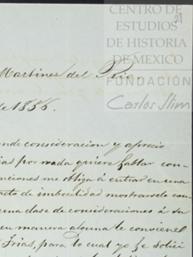 CENTRO DE
ESTUDIOS
DE HISTORIA
DE MEXICO
FUNDACIÓN
Carlos Slim
Martinez del Rio
de 1856.
consideracion y aprecio
por nada quiere faltar con
me obliga á entrar en una
de imbecilidad mostrarselo con
una clase de consideraciones á su
en manera alguna le conviene
Frias, para lo cual ya se